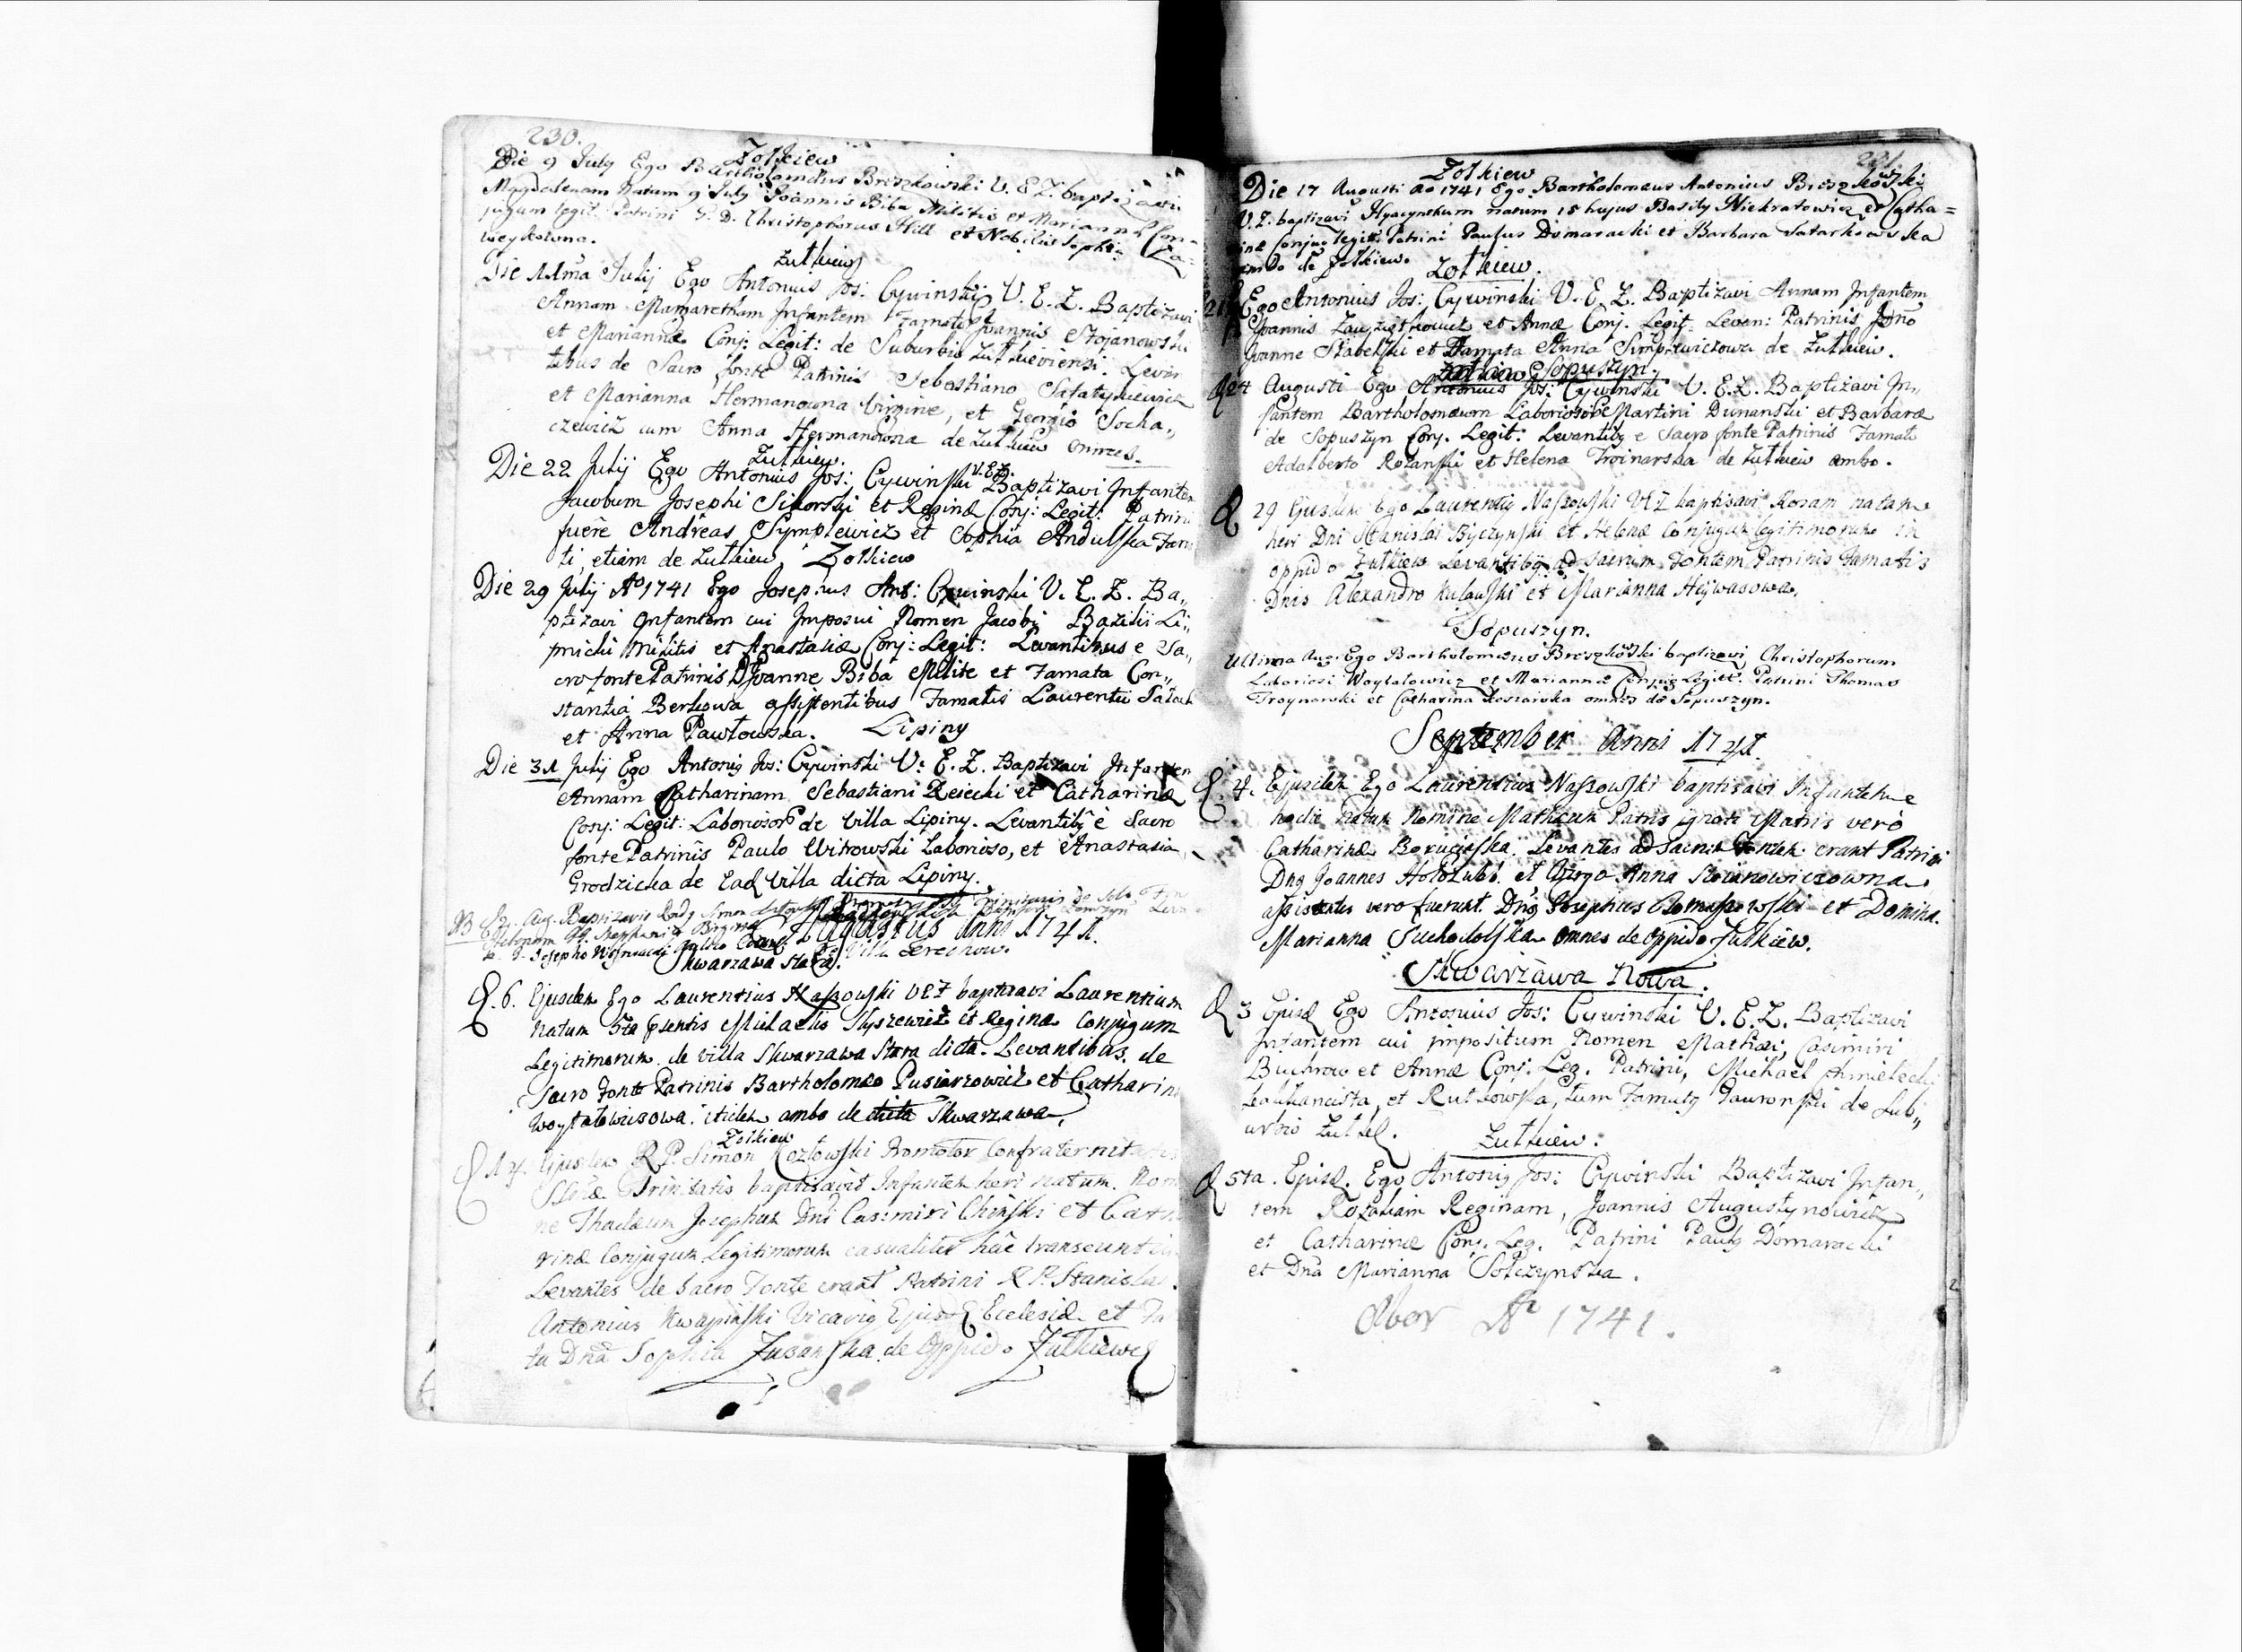 230.
Zołkiew
Die 9 July Ego Bartholomæus Breszkowski V. E. Z. baptizavi
Magdalenam natam 9 July Joannis Biba Militis et Mariannæ Con-
jugum legit: Patrini G. D. Christophorus Hill et Nobilis Sophia
weykowna.
Zutkiew
Die 11ma Julij Ego Antonius Jos: Cywinski V. E. Z. Baptizavi
Annam Margaretham Infantem Famati Joannis Stojanowski
et Mariannæ Conj: Legit: de Suburbio Zutkieviensi. Levan
tibus de Sacro fonte Patrinis Sebastiano
et Marianna Hermanowna Virgine, et Georgio Socha,,
czewicz cum Anna Hermanowna de Zutkiew omnes.
Zutkiew.
Die 22 Julij Ego Antonius Jos: Cywinski V. E. Z. Baptizavi Infantem
Jacobum Josephi Sikorski et Reginæ Conj: Legit: Patrini
fuere Andreas Symplewicz et Sophia Andulska Fam
ti, etiam de Zutkiew, Zołkiew
Die 29 Julij Ao 1741 Ego Josephus Ant: Cywinski V. E. Z. Ba,,
ptizavi Infantem cui Imposui Nomen Jacobi Bazilii Li,,
pnicki Militis et Anastasiæ Conj: Legit: Levantibus e Sa,,
cro fonte Patrinis Joanne Biba Milite et Famata Con,,
stantia Berkowa assistentibus Famatis Laurentii
et Anna Pawłowska. Lipiny
Die 31 Julij Ego Antonig Jos: Cywinski V. E. Z. Baptizavi Infantem
Annam Catharinam Sebastiani Reiecki et Catharinæ
Conj: Legit: Laboriosor de Villa Lipiny. Levantibg e Sacro
fonte Patrinis Paulo Witrowski Laborioso, et Anastasia
Grodzicka de Ead Villa dicta Lipiny.
NB
Augustus Anni 1741.
Skwarzawa Stara.
6. Ejusdem Ego Laurentius Naszowski VEZ baptizavi Laurentium
natum 5ta psentis Michaelis Skyszewicz et Reginæ Conjugum
Legitimorum de villa Skwarzawa Stara dicta. Levantibus de
Sacro Fonte Patrinis Bartholomæo Pusiarzowicz et Catharina
Woytałowiczowa. itidem ambo de dicta Skwarzawa.
Zołkiew
14. Ejusdem R. P. Simon Kozłowski Promotor Confraternitatis
SSmæ Trinitatis baptisavit Infantem heri natum Nomi
ne Thadæum Josephum Dni Casimiri Chinski et Catha
rinæ Conjugum Legitimorum casualiter hac transeuntium
Levantes de Sacro Fonte erant Patrini R. P. Stanislaus
Antonius Kwapinski Vicarig Ejusd Ecclesiæ et Fa
ta Dna Sophia Zusanska de Oppido Zutkiew
Zołkiew 231.
Die 17 Augusti Ao 1741 Ego Bartholomæus Antonius Breszkowski
V. Z. baptizavi Hyacynthum natum 15 hujus Basily Niekratowicz et Catha=
rinæ Conjug legit: Patrini Paulus Domaracki et Barbara Satarkowska
ambo de Zołkiew. Zołkiew.
21 Ego Antonius Jos: Cywinski V. E. Z. Baptizavi Annam Infantem
Joannis et Annæ Conj. Legit. Levan: Patrinis Dno
Joanne Skabelski et Famata Anna Simplewiczowa de Zutkiew.
Zutkiew Sopuszyn.
24 Augusti Ego Antonius Jos: Cywinski V. E. Z. Baptizavi In,,
fantem Bartholomæum Laboriosor Martini Dunanski et Barbaræ
de Sopuszyn Conj. Legit: Levantibg e Sacro fonte Patrinis Famato
Adalberto Rozanski et Helena Troinarska de Zutkiew ambo.
29 Ejusdem Ego Laurentig Naszowski VEZ baptisavi Rosam natam
heri Dni Stanislai Byczynski et Helenæ Conjugum legitimorum in
oppido Zutkiew Levantibg ad Sacrum Fontem Patrinis Famatis
Dnis Alexandro Kulawski et Marianna Heywasowa.
Sopuszyn.
Ultima Aug. Ego Bartholomæus Breszkowski baptizavi Christophorum
Laboriosi Woytałowicz et Mariannæ Conjug Legit. Patrini Thomas
Troynarski et Catharina Kosiarska omnes de Sopuszyn.
September Anni 1741.
4. Ejusdem Ego Laurentius Naszowski baptisavi Infantem
hodie natum Nomine Mathæum Patris ignoti Matris vero
Catharinæ Levantes ad Sacrum Fontem erant Patrini
Dng Joannes Hołozubt et Virgo Anna Stoianowiczowna
assistentes vero fuerunt Dng Josephus et Domina.
Marianna Suchodolska omnes de Oppido Zutkiew.
Skwarzawa Nowa.
3 Ejusd Ego Antonius Jos: Cywinski V. E. Z. Baptizavi
Infantem cui impositum Nomen Mathæi, Casimiri
Buchrow et Annæ Conj. Leg. Patrini, Michael Chmielecki
et Rutkowska, tum Famatg Tauronski de Sub,,
urbio Zutkl. Zutkiew.
5ta. Ejusd. Ego Antonig Jos: Cywinski Baptizavi Infan,,
tem Rozaliam Reginam, Joannis Augustynowicz
et Catharinæ Conj. Leg. Patrini Paulg Domaracki
et Dna Marianna Sołczynska.
8ber Ao 1741.